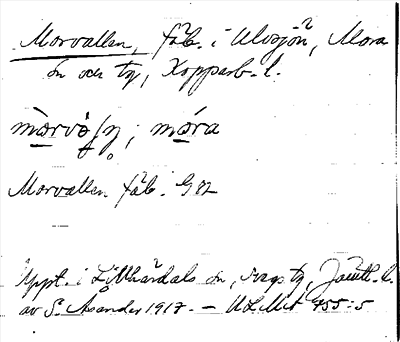 Morvallen, fäb. i Ulvsjön, Mora
sn och tg, Kopparb. l.
mòrvàɭn̥; móra
Morvallen fäb. G 82
Uppt. i Lillhärdals sn, svegs tg, Jämtl. l.
av S. Asander 1917. – ULMA 755:5